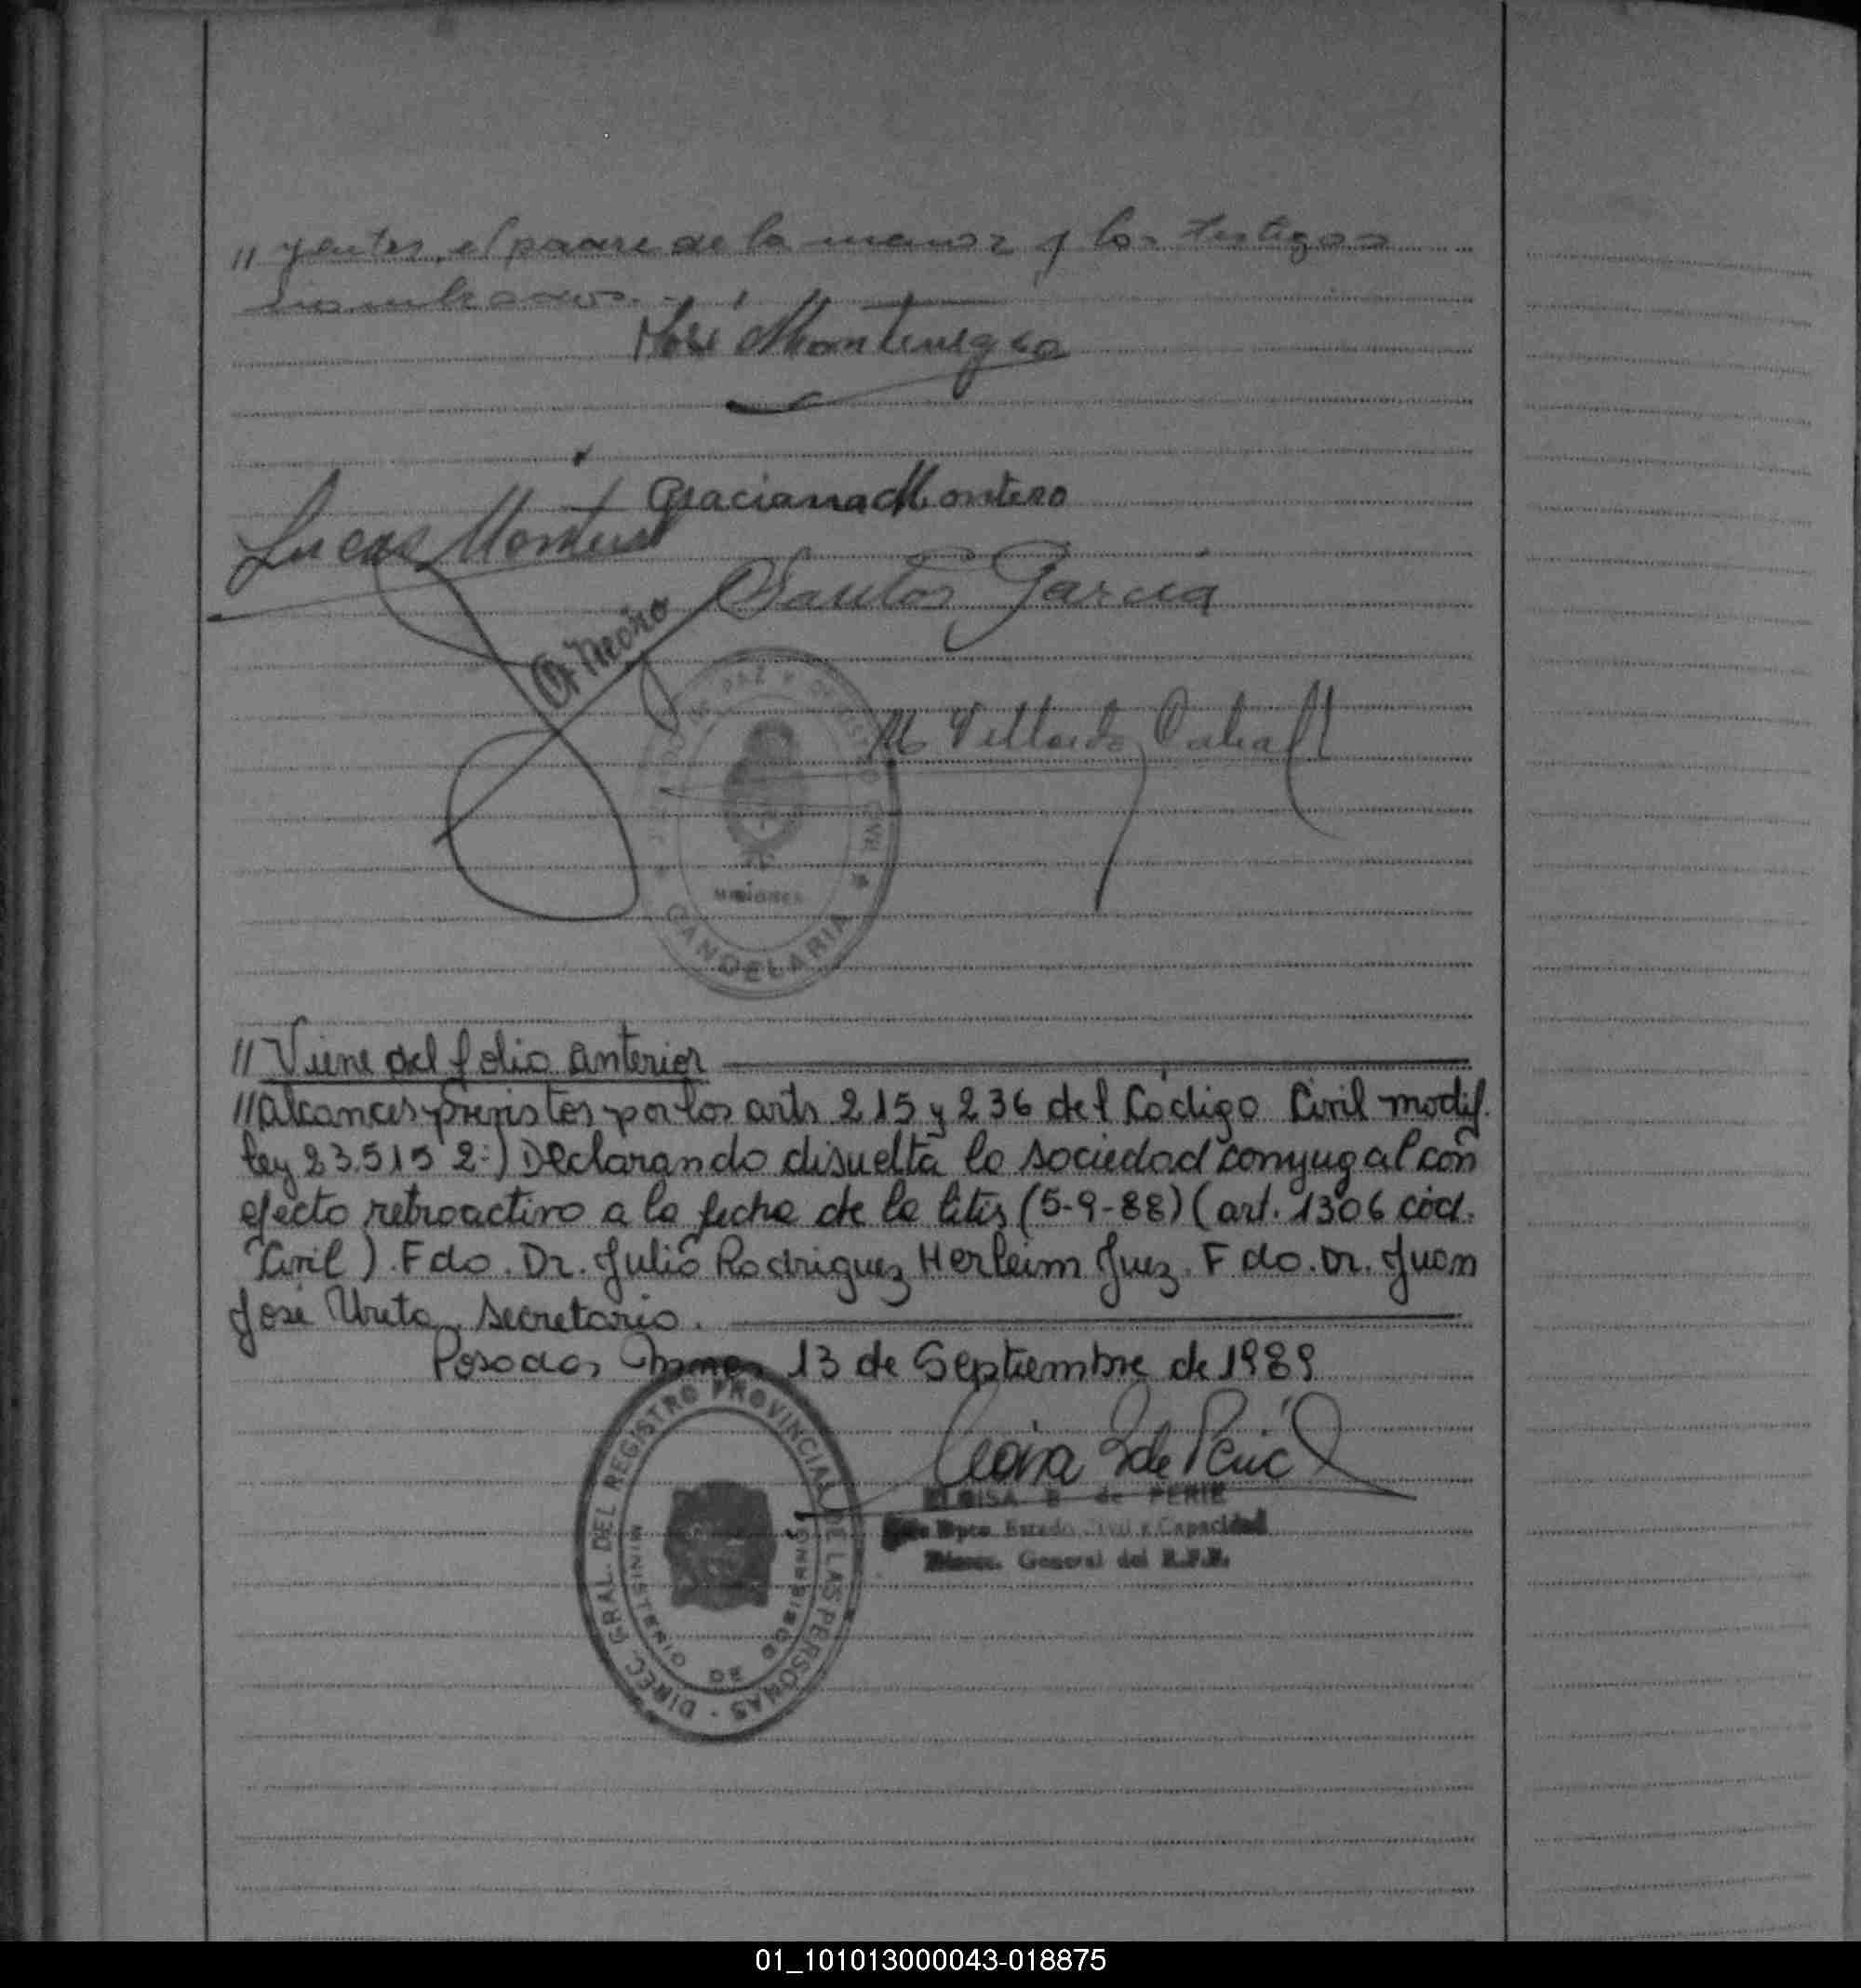 // yentes, el padre de la menor y los testigos
nombrados.-
José Montenegro
Graciana Montero
Lucas Montero
Santos García
M Villordo Cabal
CANDELARIA
// Viene del folio anterior
// alcances previstos por los arts 215 y 236 del Código Civil modif.
ley 23.515 2:) Declarando disuelta la sociedad conyugal con
efecto retroactivo a la fecha de la litis (5-9-88) (art. 1306 cód.
Civil). Fdo. Dr. Julio Rodriguez Herleim Juez. Fdo. Dr. Juan
José Ureta. Secretario.
Posadas, Mnes, 13 de Septiembre de 1989
DIREC. GRAL. DEL REGISTRO PROVINCIAL DE LAS PERSONAS
MINISTERIO DE GOBIERNO
ELOISA B de PERIE
Dpto. Estado Civil y Capacidad
General del R.P.P.
01_101013000043-018875